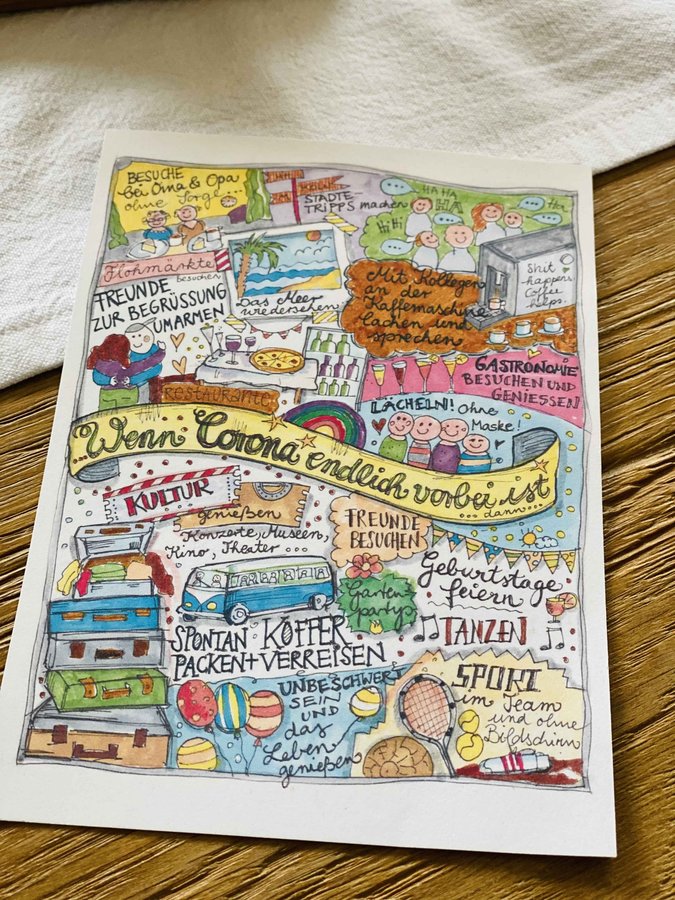 BESUCHE
bei Oma & Opa
ohne Sorge...
STÄDTE-
TRIPPS machen
HAHA
HA
HiHi
Ha
Flohmärkte
besuchen
FREUNDE
ZUR BEGRÜSSUNG
UMARMEN
Das Meer
wiedersehen
Mit Kollegen
an der
Kaffemaschine
lachen und
sprechen
Shit
happens
Coffee
helps.
Restaurants
GASTRONOMIE
BESUCHEN UND
GENIESSEN
LÄCHELN! ohne
Maske!
...Wenn Corona endlich vorbei ist
...dann...
KULTUR
genießen
Konzerte, Museen,
Kino, Theater ...
FREUNDE
BESUCHEN
Geburtstage
feiern
Garten-
party
TANZEN
SPONTAN KOFFER
PACKEN + VERREISEN
UNBESCHWERT
SEIN
UND
das
Leben
genießen
SPORT
im Team
und ohne
Bildschirm